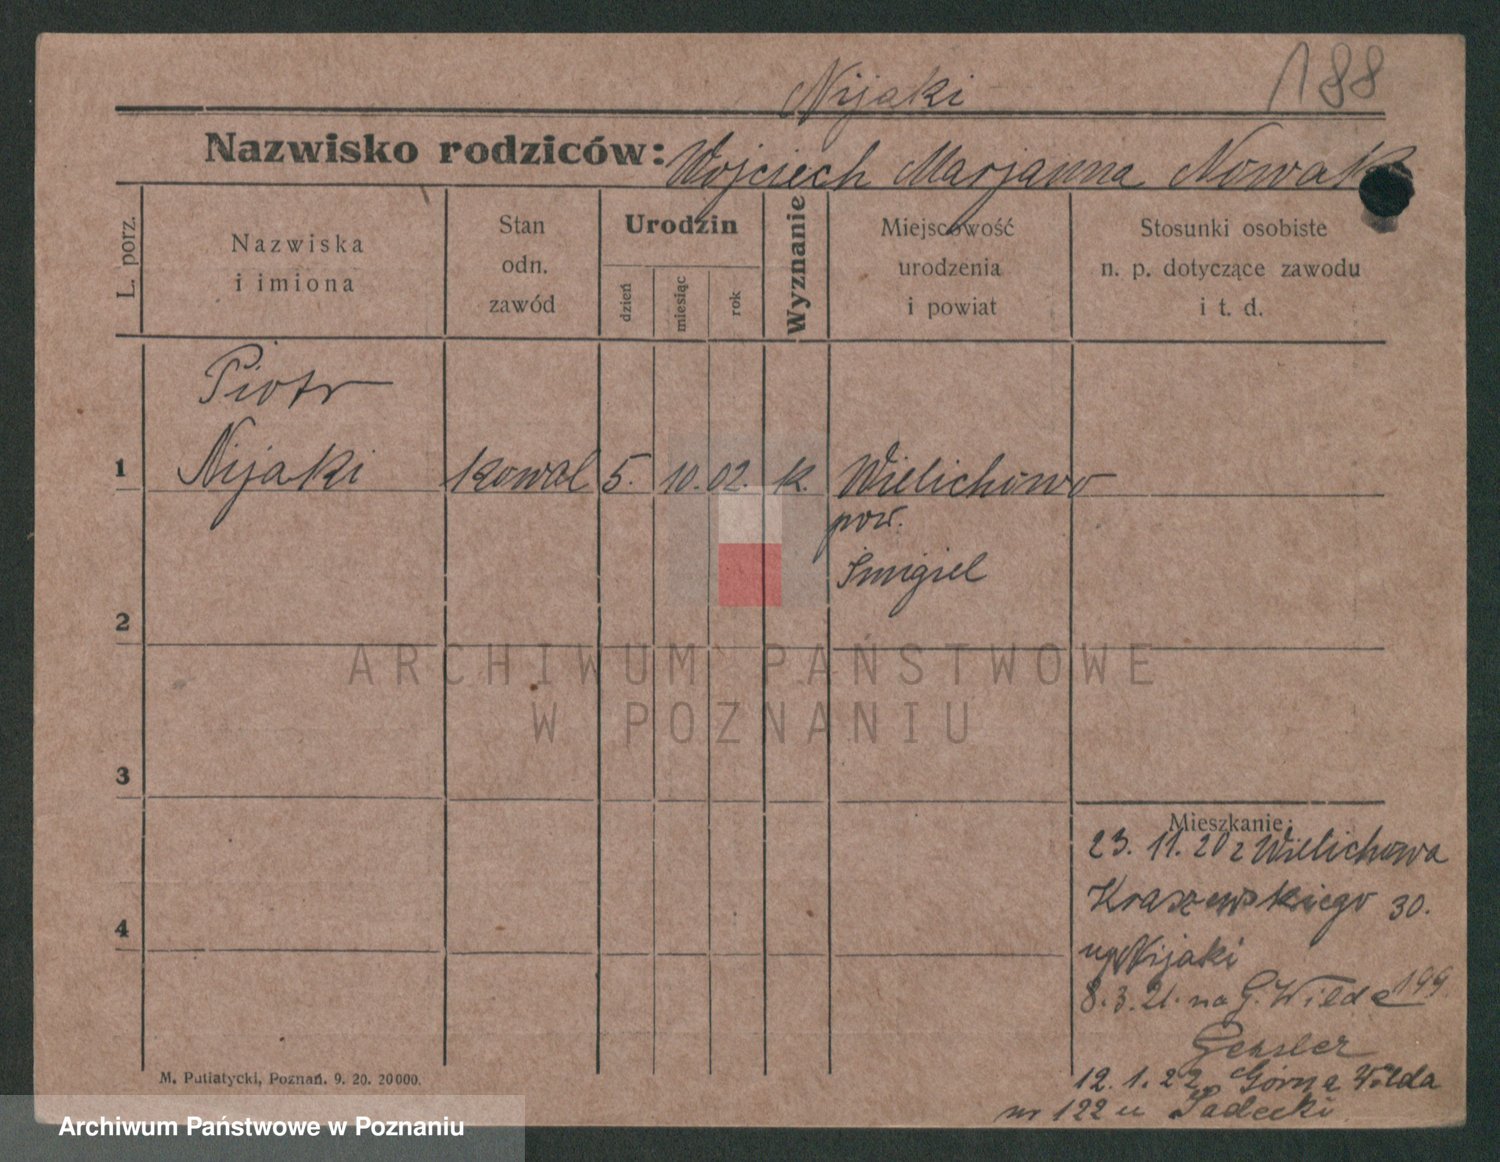 Nijaki 188
Nazwisko rodziców: Wojciech Marjanna Nowak
L. porz.
Nazwiska
i imiona
Stan
odn.
zawód
Urodzin
dzień
miesiąc
rok
Wyznanie
Miejscowość
urodzenia
i powiat
Stosunki osobiste
n. p. dotyczące zawodu
i t. d.
Piotr
1 Nijaki kowal 5. 10. 02. k. Wielichowo
pow.
Śmigiel
2
ARCHIWUM PAŃSTWOWE
W POZNANIU
3
Mieszkanie:
23. 11. 20 z Wielichowa
Kraszewskiego 30.
Nijaki
4
8. 3. 21. na G. Wilde 199
12. 1. 22 Górna Wilda
nr 122 u Sadecki
M. Putiatycki, Poznań. 9. 20. 20000.
Archiwum Państwowe w Poznaniu